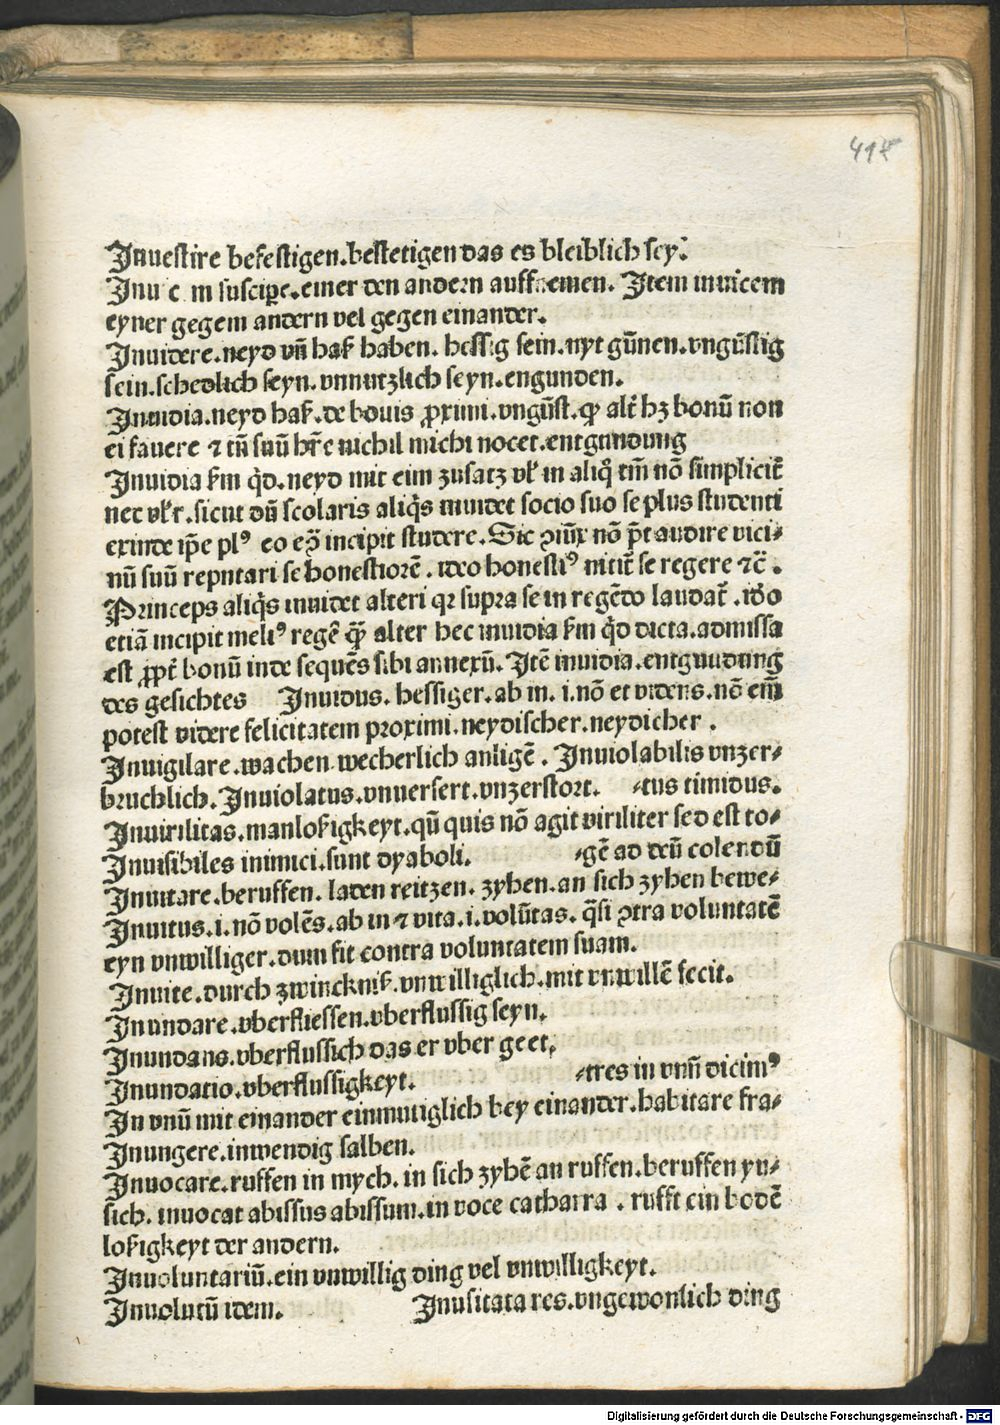 414
Inuestire befestigen.bestetigen das es bleiblich sey.
Inu c m suscipe.einer den andern auffnemen. Item inuicem
eyner gegem andern vel gegen einander.
Inuidere.neyd vñ haß haben. hessig sein.nyt gũnen.vngũstig
sein.schedlich seyn.vnnutzlich seyn.engunden.
Inuidia.neyd haß.de bouis ꝓximi.vngũst.ꝙ alt̃ hꝫ bonũ non
ei fauere ⁊ tñ suũ hr̃e nichil michi nocet.entgundung
Inuidia ẜm q̃d.neyd mit eim zusatz vł in aliq̊ tm̃ nõ simplicit̃
nec vłr.sicut dũ scolaris aliq̃s inuidet socio suo se plus studenti
exinde ip̃e plꝰ eo eꝙ̃ incipit studere.Sic ꝓiux nõ p̃t audire vici⸗
nũ suũ reputari se honestiorẽ.ideo honestiꝰ nitit̃ se regere ⁊c̃.
Princeps aliq̃s inuidet alteri qꝛ supra se in regẽdo laudat̃.iđo
etiã incipit meliꝰ regẽ ꝙ̃ alter hec inuidia ẜm q̃d dicta.admissa
est ꝓpt̃ bonũ inde sequẽs sibi annexũ. Itẽ inuidia.entgundung
des gesichtes Inuidus. hessiger.ab in.i.nõ et videns.nõ em̃
potest videre felicitatem proximi.neydischer.neydicher.
Inuigilare.wachen wecherlich anligẽ. Inuiolabilis vnzer⸗
bruchlich. Inuiolatus.vnuersert.vnzerstort. ⸗tus timidus.
Inuirilitas.manloßigkeyt.qũ quis nõ agit viriliter sed est to⸗
Inuisibiles inimici.sunt dyaboli. ⸗gẽ ad deũ colendũ
Inuitare.beruffen. laden reitzen. zyhen.an sich zyhen bewe⸗
Inuitus.i.nõ volẽs.ab in ⁊ vita.i.volũtas. q̃si ꝯtra voluntatẽ
eyn vnwilliger.dum fit contra voluntatem suam.
Inuite.durch zwinckniß.vnwilliglich.mit vnwillẽ fecit.
Inundare.vberfliessen.vberflussig seyn.
Inundans.vberflussich das er vber geet.
Inundatio.vberflussigkeyt. ⸗tres in vnũ dicimꝰ
In vnũ mit einander einmutiglich bey einander.habitare fra⸗
Inungere.inwendig salben.
Inuocare.ruffen in mych. in sich zyhẽ an ruffen.beruffen yn⸗
sich. inuocat abissus abissum.in voce catharra. rufft ein bodẽ
loßigkeyt der andern.
Inuoluntariũ.ein vnwillig ding vel vnwilligkeyt.
Inuolutũ idem. Inusitata res.vngewonlich ding
Digitalisierung gefördert durch die Deutsche Forschungsgemeinschaft - DFG